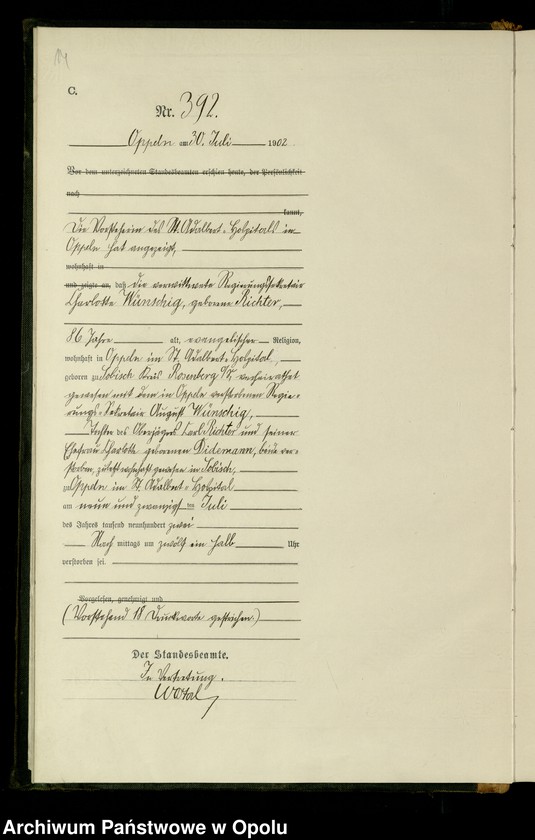 C.
Nr. 392.
Oppeln am 30. Juli 1902
Vor dem unterzeichneten Standesbeamten erschien heute, der Persönlichkeit
nach
kannt,
Die Vorsteherin des St. Adalbert-Hospitals in
Oppeln hat angezeigt,
wohnhaft in
und zeigte an, daß die verwittwete Regierungssekretair
Charlotte Wünschig, geborene Richter,
86 Jahre alt, evangelischer Religion,
wohnhaft in Oppeln im St. Adalbert-Hospital,
geboren zu Kreis Rosenberg O/S, verheirathet
gewesen mit dem in Oppeln verstorbenen Regie-
rungs-Sekretair August Wünschig,
Tochter des Oberjägers Carl Richter und seiner
Ehefrau Charlotte geborenen Didemann, beide ver-
storben, zuletzt wohnhaft gewesen in
zu Oppeln im St. Adalbert-Hospital
am neun und zwanzigsten Juli
des Jahres tausend neunhundert zwei
Nach mittags um zwölf ein halb Uhr
verstorben sei.
Vorgelesen, genehmigt und
(Vorstehend 18 Druckworte gestrichen.)
Der Standesbeamte.
In Vertretung.
Archiwum Państwowe w Opolu